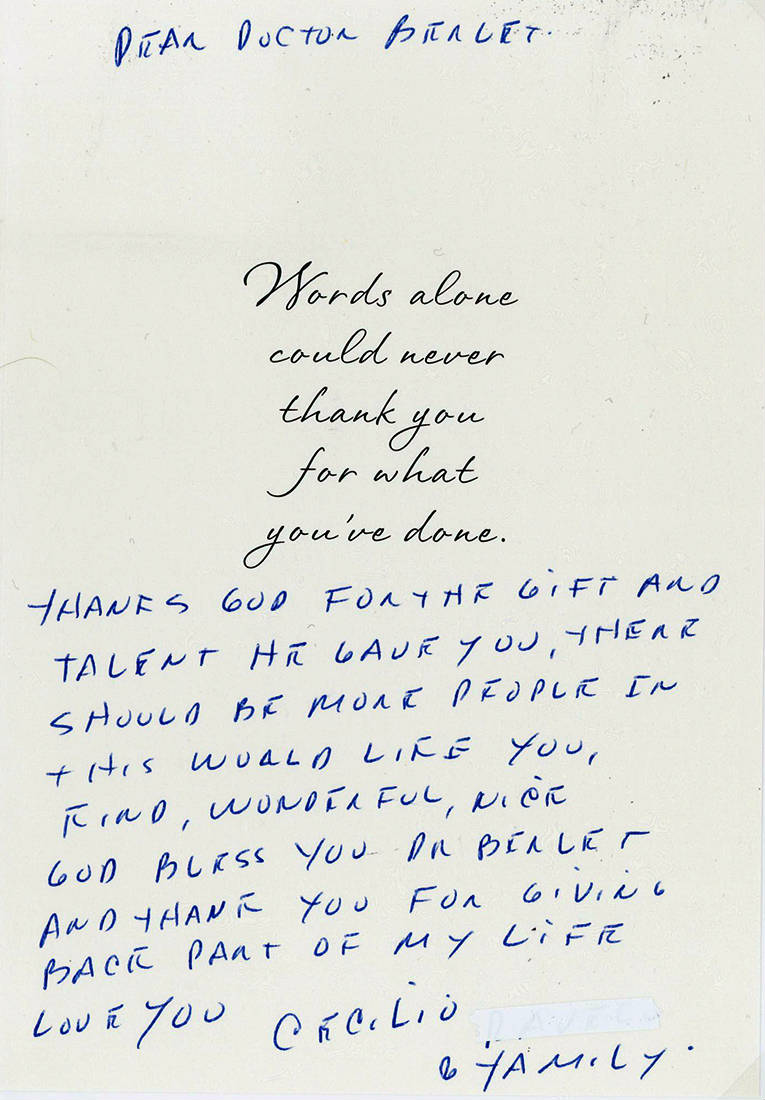 DEAR DOCTOR BERLET.
Words alone
could never
thank you
for what
you've done.
THANKS GOD FOR THE GIFT AND
TALENT HE GAVE YOU, THERE
SHOULD BE MORE PEOPLE IN
THIS WORLD LIKE YOU,
KIND, WONDERFUL, NICE
GOD BLESS YOU DR BERLET
AND THANK YOU FOR GIVING
BACK PART OF MY LIFE
LOVE YOU CECILIO
& FAMILY.